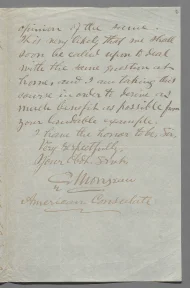 opinion of the same.
It is very likely that we shall
soon be called upon to deal
with the same question at
home and I am taking this
course in order to derive as
much benefit as possible from
your honorable example.
I have the honor to be, Sir,
Very respectfully,
Your Obdt Servt
American Consulate